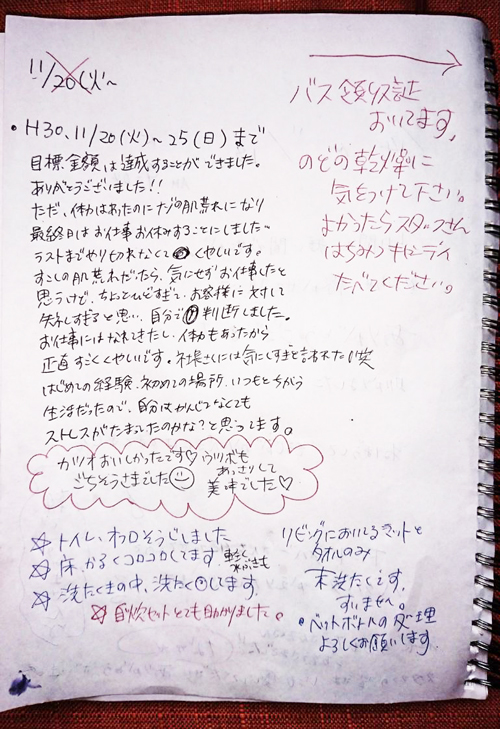 11/20(火)~
• H30、11/20(火)~25(日)まで
目標金額は達成することができました。
ありがとうございました!!
ただ、体力はあったのにナゾの肌荒れになり
最終日はお仕事お休みすることにしました…
ラストまでやりきれなくてくやしいです。
すこしの肌荒れだったら、気にせずお仕事したと
思うけど、ちょっとひどすぎて、お客様に対して
失礼すぎると思い、自分で判断しました。
お仕事にはなれてきたし、体力もあったから
正直すごくくやしいです。社長さんには気にしすぎと言われた(笑
はじめての経験、初めての場所、いつもとちがう
生活だったので、自分はかんじてなくても
ストレスがたまっていたのかな?と思ってます。
カツオおいしかったです♡ ウツボも
あっさりして
ごちそうさまでした☺ 美味でした♡
☆トイレ、オフロそうじしました
☆床、かるくコロコロしてます 軽く水ぶきも
☆洗たくきの中、洗たくしてます。
☆自炊セットとても助かりました。
バス領収証
おいてます。
のどの乾燥に
気をつけて下さい。
よかったらスタッフさん
はちみつキャンディ
たべてください。
リビングにおいてるマットと
タオルのみ
未洗たくです。
すいません。
•ペットボトルの処理
よろしくお願いします